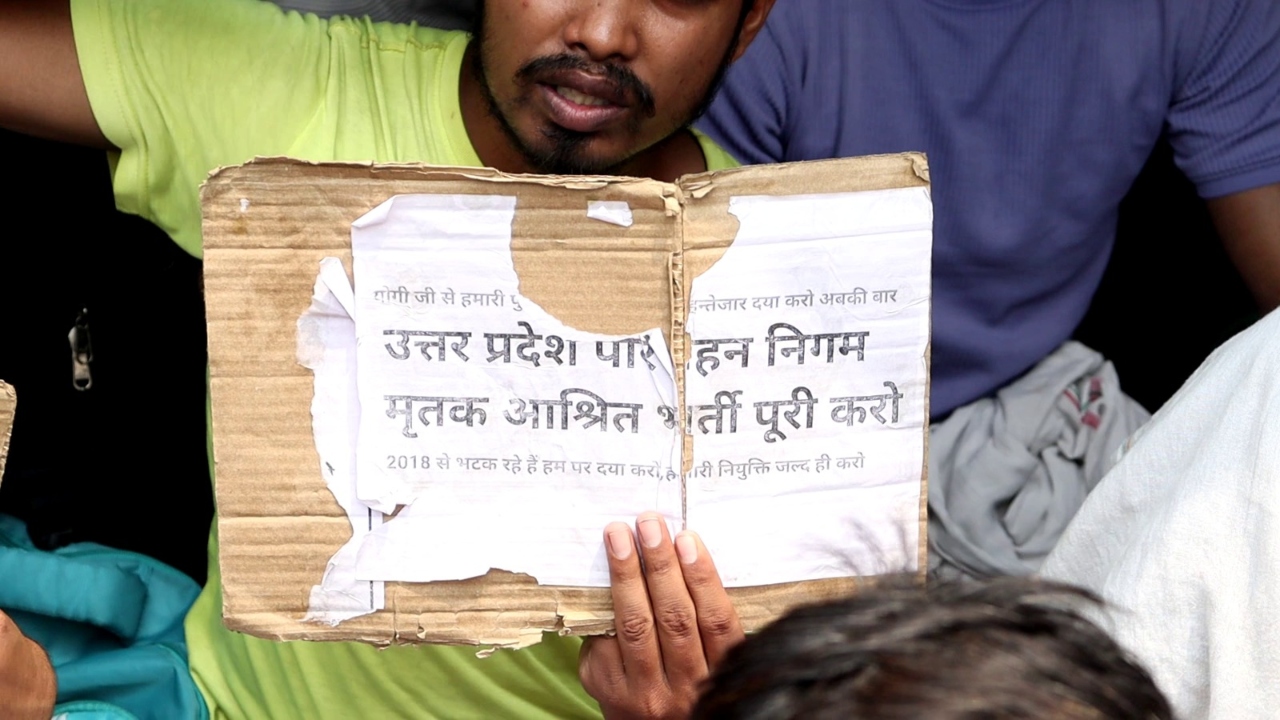 योगी जी से हमारी हन्तेजार दया करो अबकी बार
उत्तर प्रदेश हन निगम
मृतक आश्रित भर्ती पूरी करो
2018 से भटक रहे हैं हम पर दया करो, हमारी नियुक्ति जल्द ही करो